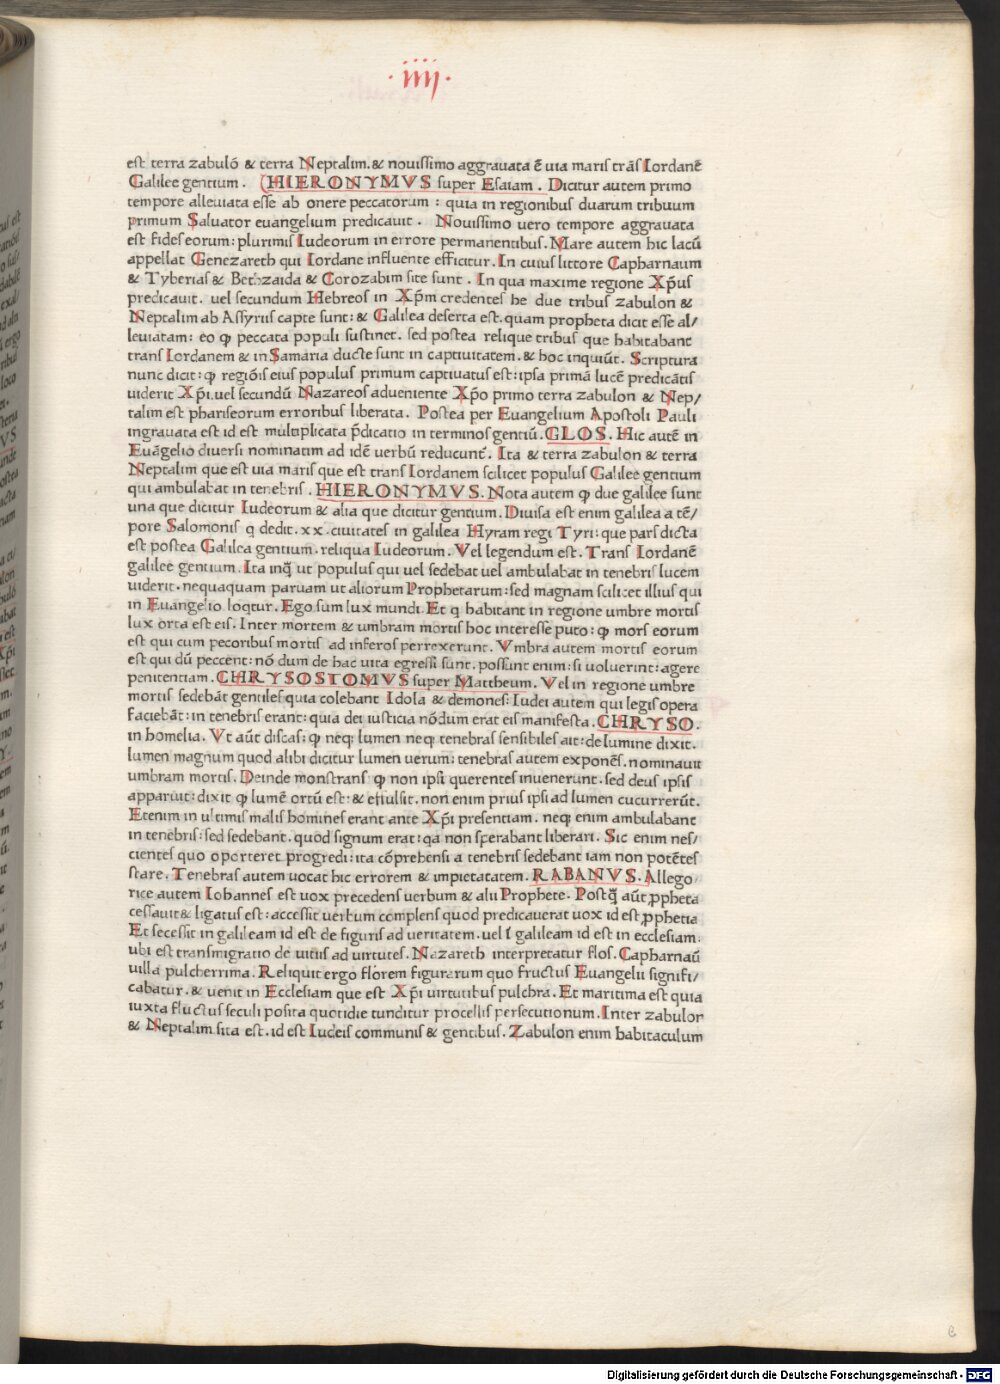 · iiij ·
est terra zabulō & terra Neptalim. & nouissimo aggrauata ē uia maris trās Iordanē
Galilee gentium. HIERONYMVS super Esaiam. Dicitur autem primo
tempore alleuiata esse ab onere peccatorum : quia in regionibus duarum tribuum
primum Saluator euangelium predicauit. Nouissimo uero tempore aggrauata
est fides eorum: plurimis Iudeorum in errore permanentibus. Mare autem hic lacū
appellat Genezareth qui Iordane influente efficitur. In cuius littore Capharnaum
& Tyberias & Bethzaida & Corozabim site sunt. In qua maxime regione Xp̄us
predicauit. uel secundum Hebreos in Xp̄m credentes he due tribus zabulon &
Neptalim ab Assyriis capte sunt: & Galilea deserta est. quam propheta dicit esse al/
leuiatam: eo ꝙ peccata populi sustinet. sed postea relique tribus que habitabant
trans Iordanem & in Samaria ducte sunt in captiuitatem. & hoc inquiūt. Scriptura
nunc dicit: ꝙ regiōis eius populus primum captiuatus est: ipsa primā lucē predicātis
uiderit Xp̄i. uel secundū Nazareos adueniente Xp̄o primo terra zabulon & Nep/
talim est phariseorum erroribus liberata. Postea per Euangelium Apostoli Pauli
ingrauata est id est multiplicata p̄dicatio in terminos gentiū. GLOS. Hic autē in
Euāgelio diuersi nominatim ad idē uerbū reducunt̄. Ita & terra zabulon & terra
Neptalim que est uia maris que est trans Iordanem scilicet populus Galilee gentium
qui ambulabat in tenebris. HIERONYMVS. Nota autem ꝙ due galilee sunt
una que dicitur Iudeorum & alia que dicitur gentium. Diuisa est enim galilea a tē/
pore Salomonis q dedit. xx. ciuitates in galilea Hyram regi Tyri: que pars dicta
est postea Galilea gentium. reliqua Iudeorum. Vel legendum est. Trans Iordanē
galilee gentium. Ita inq̄ ut populus qui uel sedebat uel ambulabat in tenebris lucem
uiderit. nequaquam paruam ut aliorum Prophetarum: sed magnam scilicet illius qui
in Euangelio loqtur. Ego sum lux mundi. Et q habitant in regione umbre mortis
lux orta est eis. Inter mortem & umbram mortis hoc interesse puto: ꝙ mors eorum
est qui cum pecoribus mortis ad inferos perrexerunt. Vmbra autem mortis eorum
est qui dū peccent: nō dum de hac uita egressi sunt. possunt enim: si uoluerint: agere
penitentiam. CHRYSOSTOMVS super Mattheum. Vel in regione umbre
mortis sedebāt gentiles quia colebant Idola & demones: Iudei autem qui legis opera
faciebāt: in tenebris erant: quia dei iusticia nōdum erat eis manifesta. CHRYSO.
in homelia. Vt aūt discas: ꝙ neq; lumen neq; tenebras sensibiles ait: de lumine dixit.
lumen magnum quod alibi dicitur lumen uerum: tenebras autem exponēs. nominauit
umbram mortis. Deinde monstrans ꝙ non ipsi querentes inuenerunt. sed deus ipsis
apparuit: dixit ꝙ lumē ortū est: & effulsit. non enim prius ipsi ad lumen cucurrerūt.
Etenim in ultimis malis homines erant ante Xp̄i presentiam. neq; enim ambulabant
in tenebris: sed sedebant. quod signum erat: qa non sperabant liberari. Sic enim nes/
cientes quo oporteret progredi: ita cōprehensi a tenebris sedebant iam non potētes
stare. Tenebras autem uocat hic errorem & impietatem. RABANVS. Allego
rice autem Iohannes est uox precedens uerbum & alii Prophete. Postq̄ aūt ꝓpheta
cessauit & ligatus est: accessit uerbum complens quod predicauerat uox id est ꝓphetia
Et secessit in galileam id est de figuris ad ueritatem. uel ī galileam id est in ecclesiam.
ubi est transmigratio de uitiis ad uirtutes. Nazareth interpretatur flos. Capharnaū
uilla pulcherrima. Reliquit ergo florem figurarum quo fructus Euangelii signifi/
cabatur. & uenit in Ecclesiam que est Xp̄i uirtutibus pulchra. Et maritima est quia
iuxta fluctus seculi posita quotidie tunditur procellis persecutionum. Inter zabulon
& Neptalim sita est. id est Iudeis communis & gentibus. Zabulon enim habitaculum
Digitalisierung gefördert durch die Deutsche Forschungsgemeinschaft - DFG